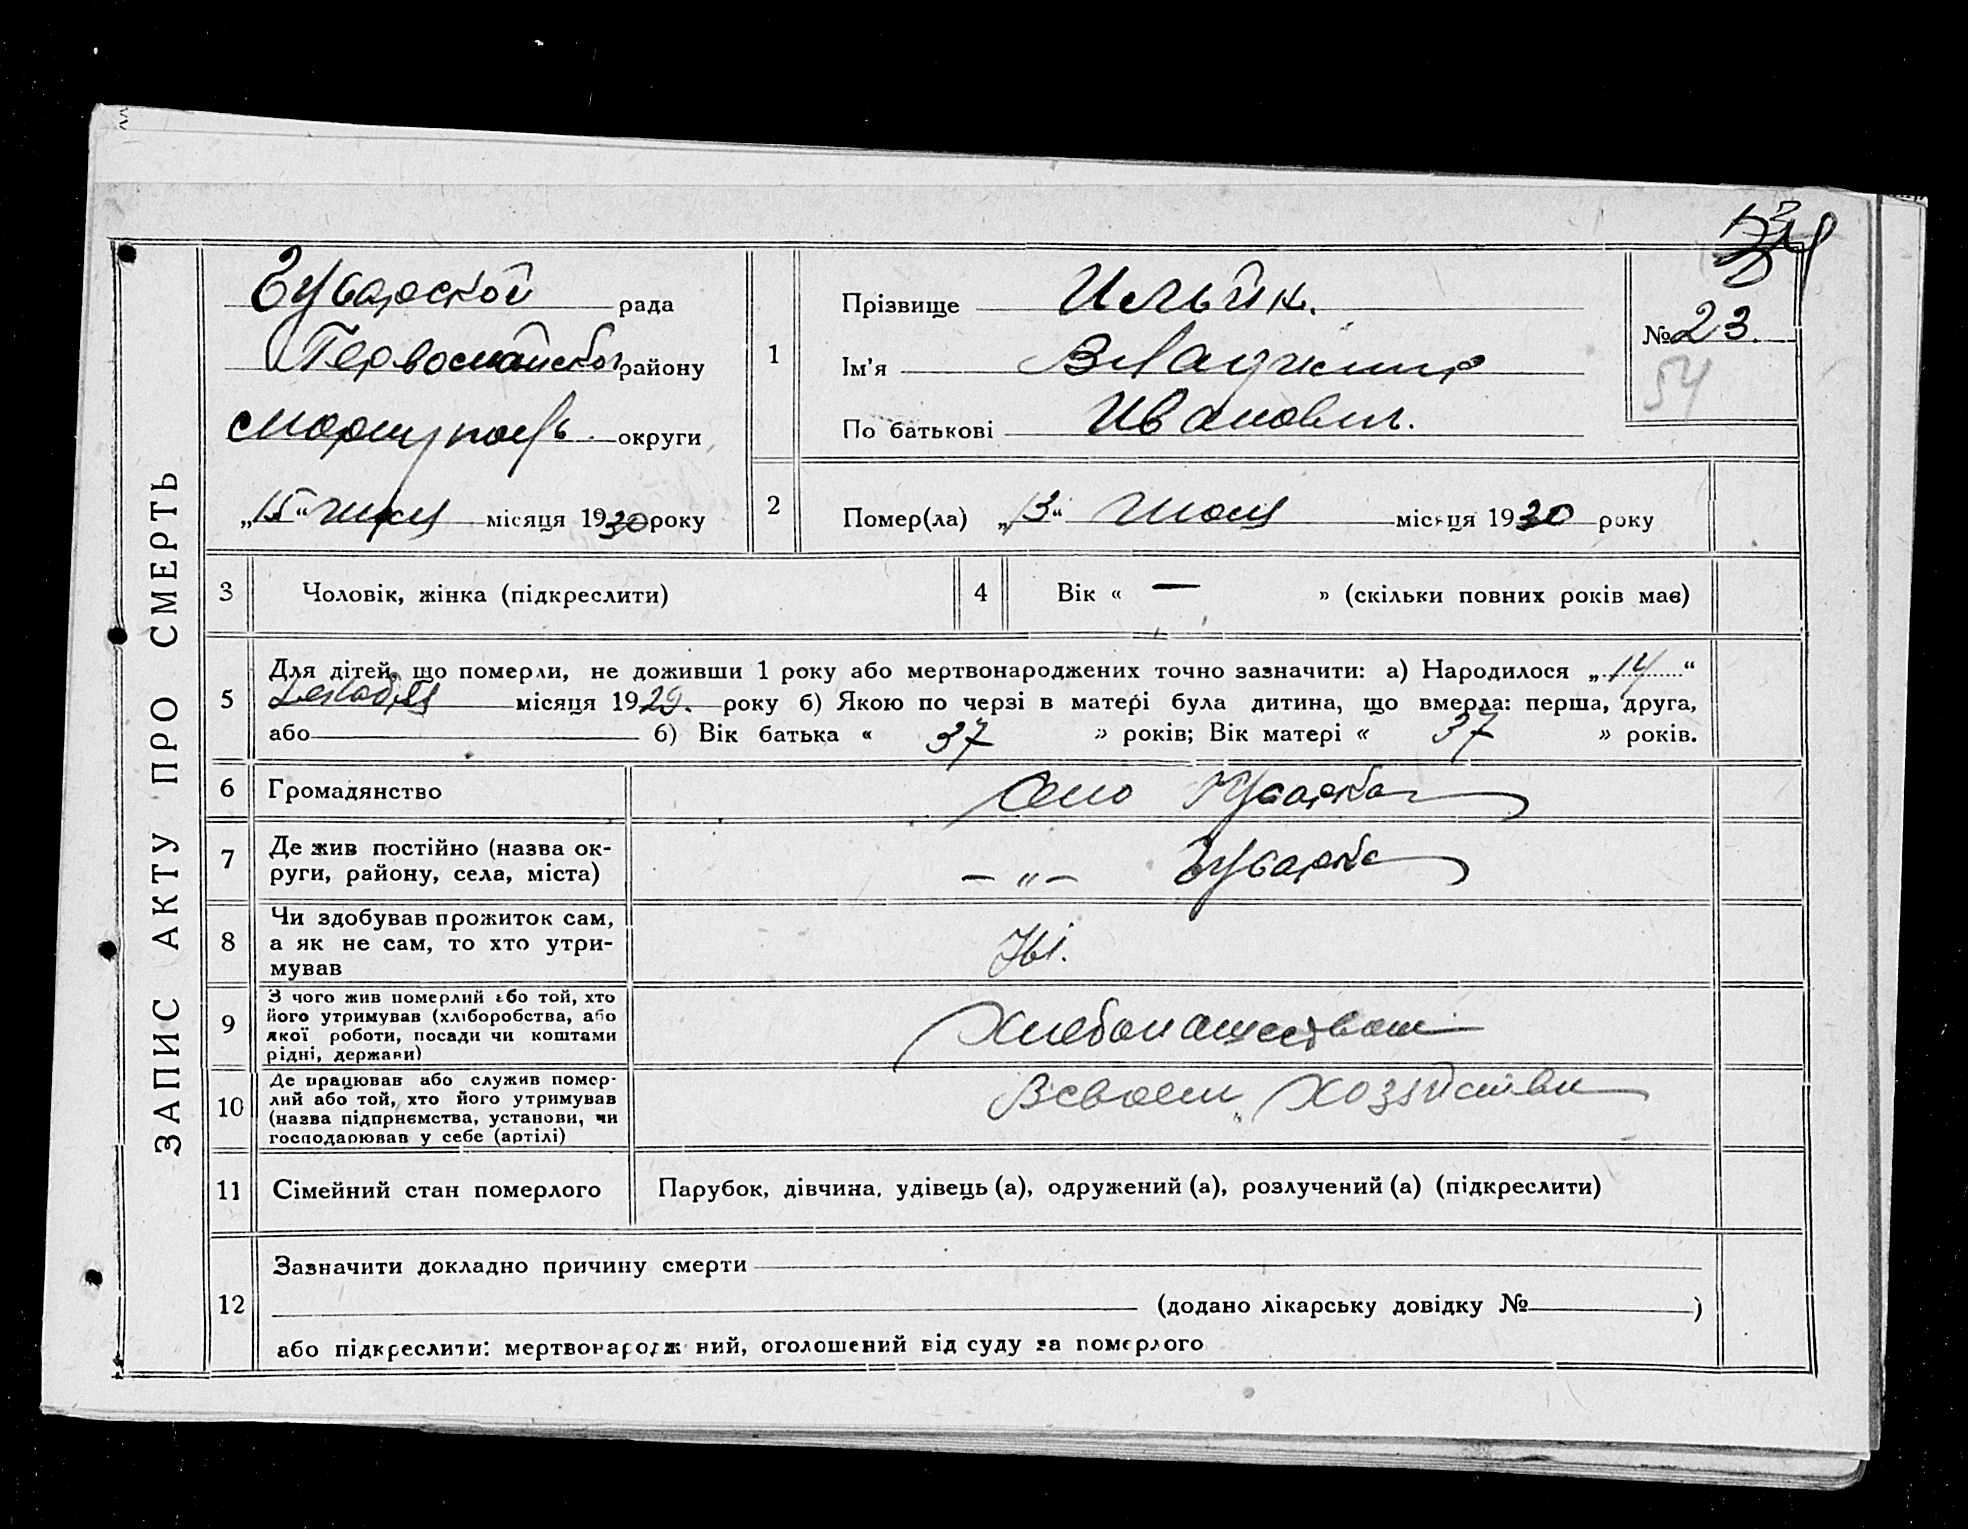 ЗАПИС АКТУ ПРО СМЕРТЬ
Гусарской рада
Первомайской району
Мариуполь округи
„15“ июля місяця 1930 року
1
Прізвище Ильйк.
Ім'я Владимир
По батькові Иванович.
№ 23.
54
2
Помер(ла) „13“ июля місяця 1930 року
3 Чоловік, жінка (підкреслити)
4 Вік « — » (скільки повних років має)
5 Для дітей, що померли, не доживши 1 року або мертвонароджених точно зазначити: а) Народилося „14“
Декабря місяця 1929. року б) Якою по черзі в матері була дитина, що вмерла: перша, друга,
або б) Вік батька « 37 » років; Вік матері « 37 » років.
6 Громадянство Село Гусарка
7 Де жив постійно (назва ок-
руги, району, села, міста) — „ — Гусарка
8 Чи здобував прожиток сам,
а як не сам, то хто утри-
мував
9 З чого жив померлий або той, хто
його утримував (хліборобства, або
якої роботи, посади чи коштами
рідні, держави) Хлебопашеством
10 Де працював або служив помер-
лий або той, хто його утримував
(назва підприємства, установи, чи
господарював у себе (артілі) В своем хозяйстви
11 Сімейний стан померлого Парубок, дівчина, удівець (а), одружений (а), розлучений (а) (підкреслити)
12 Зазначити докладно причину смерти
(додано лікарську довідку № )
або підкреслити: мертвонародж ний, оголошений від суду за померлого